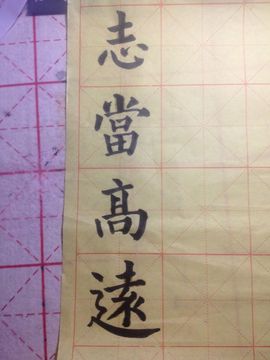 志當高遠